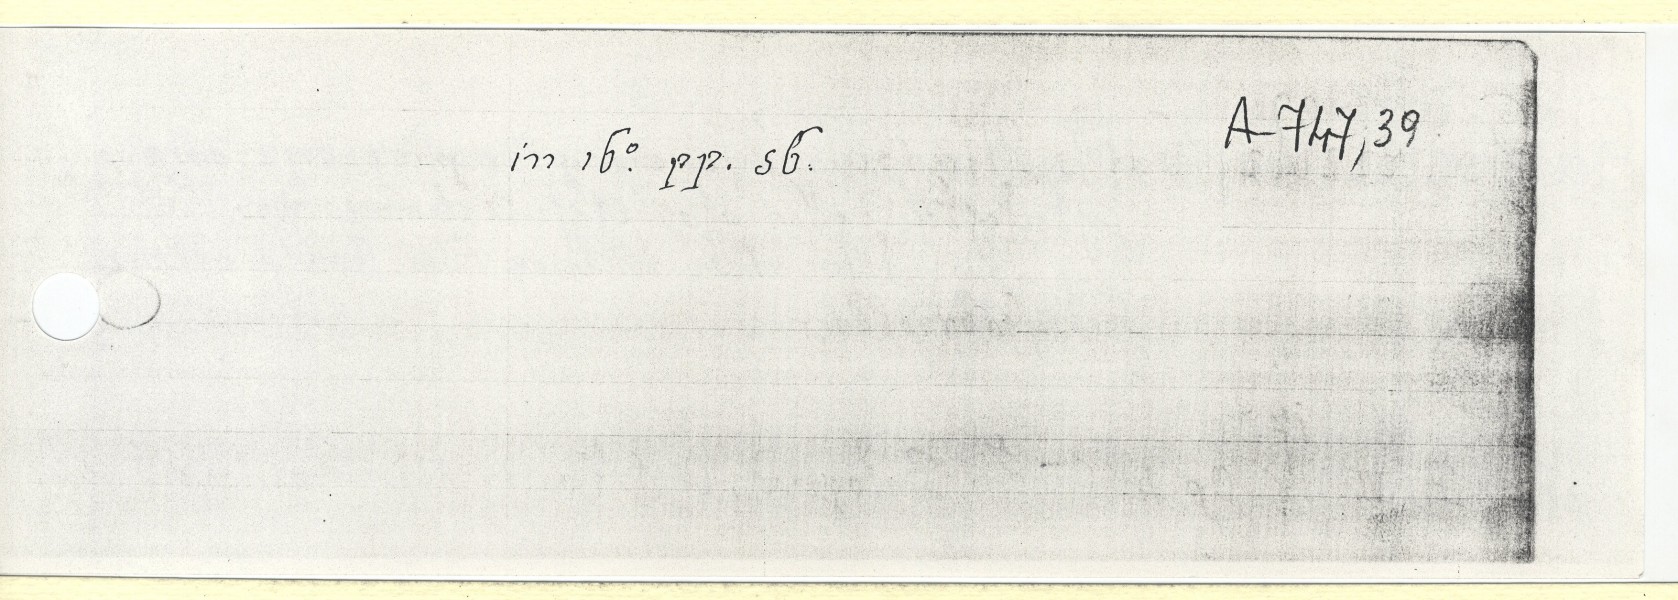 A-747,39
in 16°. pp. 56.